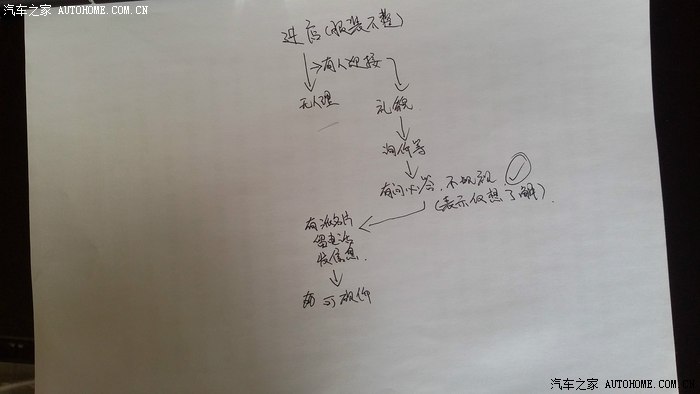 汽车之家 AUTOHOME.COM.CN
进店(服装不整)
→有人迎接
无人理
礼貌
询价等
有问必答.不敷衍
(表示仅想了解).
有派名片
留电话
发信息.
汽车之家 AUTOHOME.COM.CN